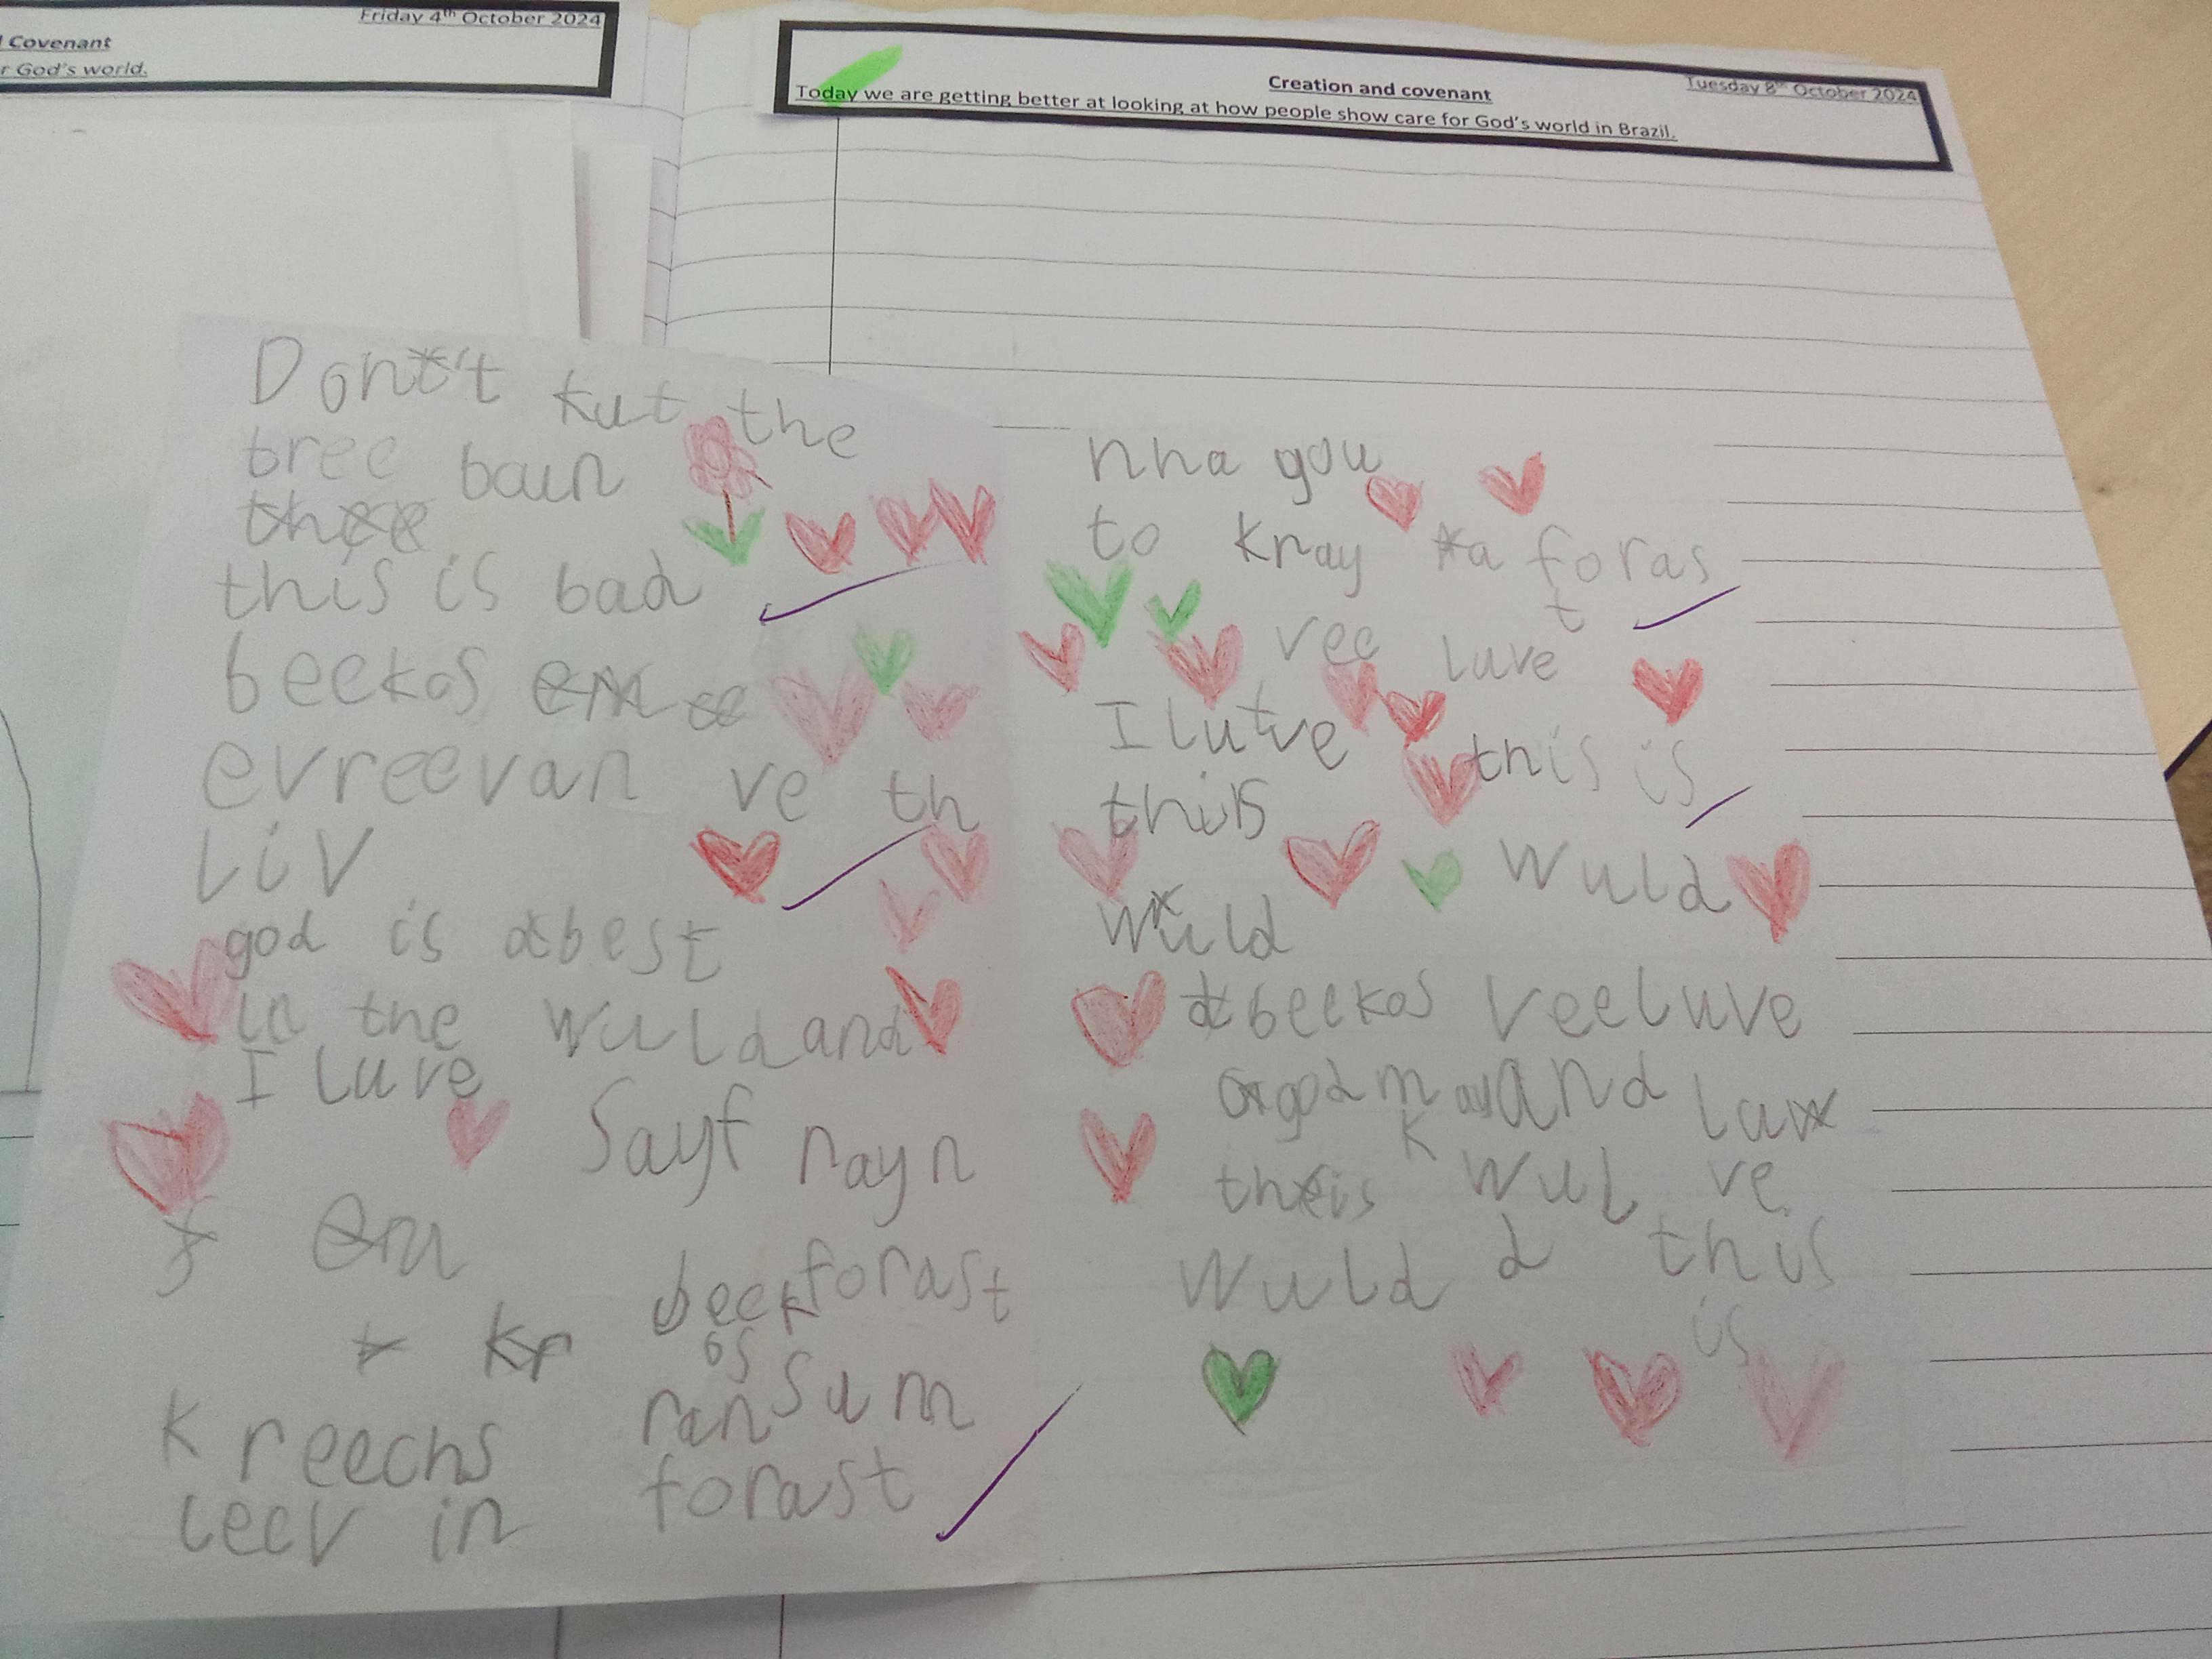 Friday 4th October 2024
Covenant
r God's world.
Creation and covenant
Tuesday 8th October 2024
Today we are getting better at looking at how people show care for God's world in Brazil.
Don't kut the
tree baun
this is bad
beekos
evreevan ve th
liv
god is best
in the wuld and
I luve
Sayf rayn
forast
beek
os
kreechs ran sum
leev in forast
nha gou
to knay a foras
t
vee luve
I luve this is
this
wuld
wuld
beekos vee luve
god may and lau
k
this wul ve
wuld d this
is